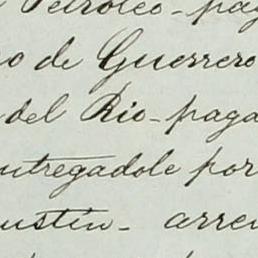 Petroleo - pag
o de Guerrero
del Rio - paga
ntregadole por
ustin - arren